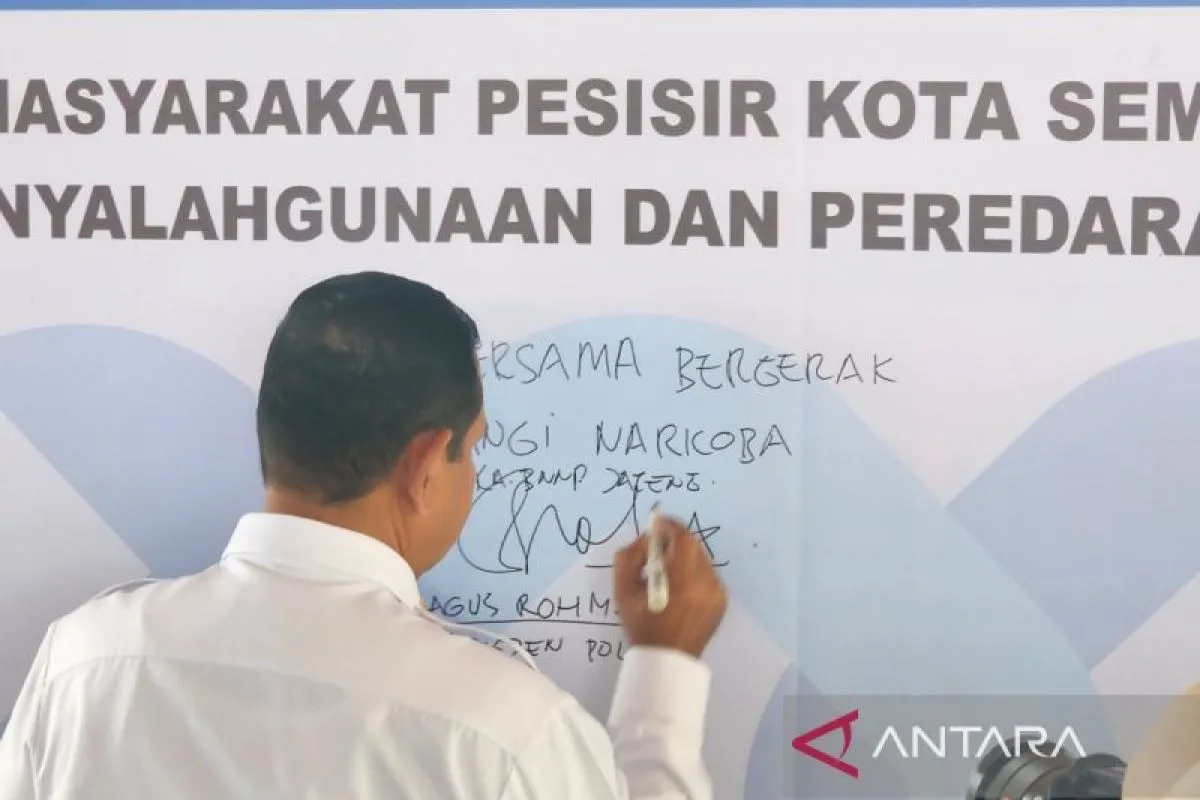 MASYARAKAT PESISIR KOTA SEM
NYALAHGUNAAN DAN PEREDARA
ERSAMA BERGERAK
ANGI NARKOBA
KA. BNNP JATENG.
AGUS ROHM
POL
ANTARA